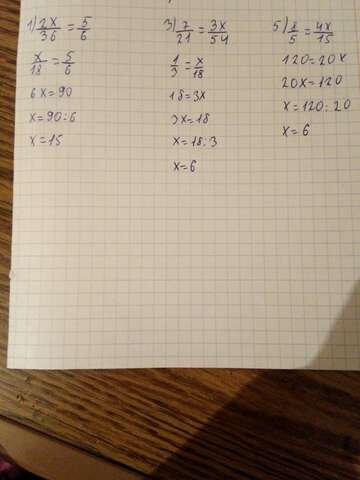 1) 2x/36 = 5/6
x/18 = 5/6
6x=90
x=90:6
x=15
3) 7/21 = 3x/54
1/3 = x/18
18=3x
3x=18
x=18:3
x=6
5) 8/5 = 4x/15
120=20x
20x=120
x=120:20
x=6